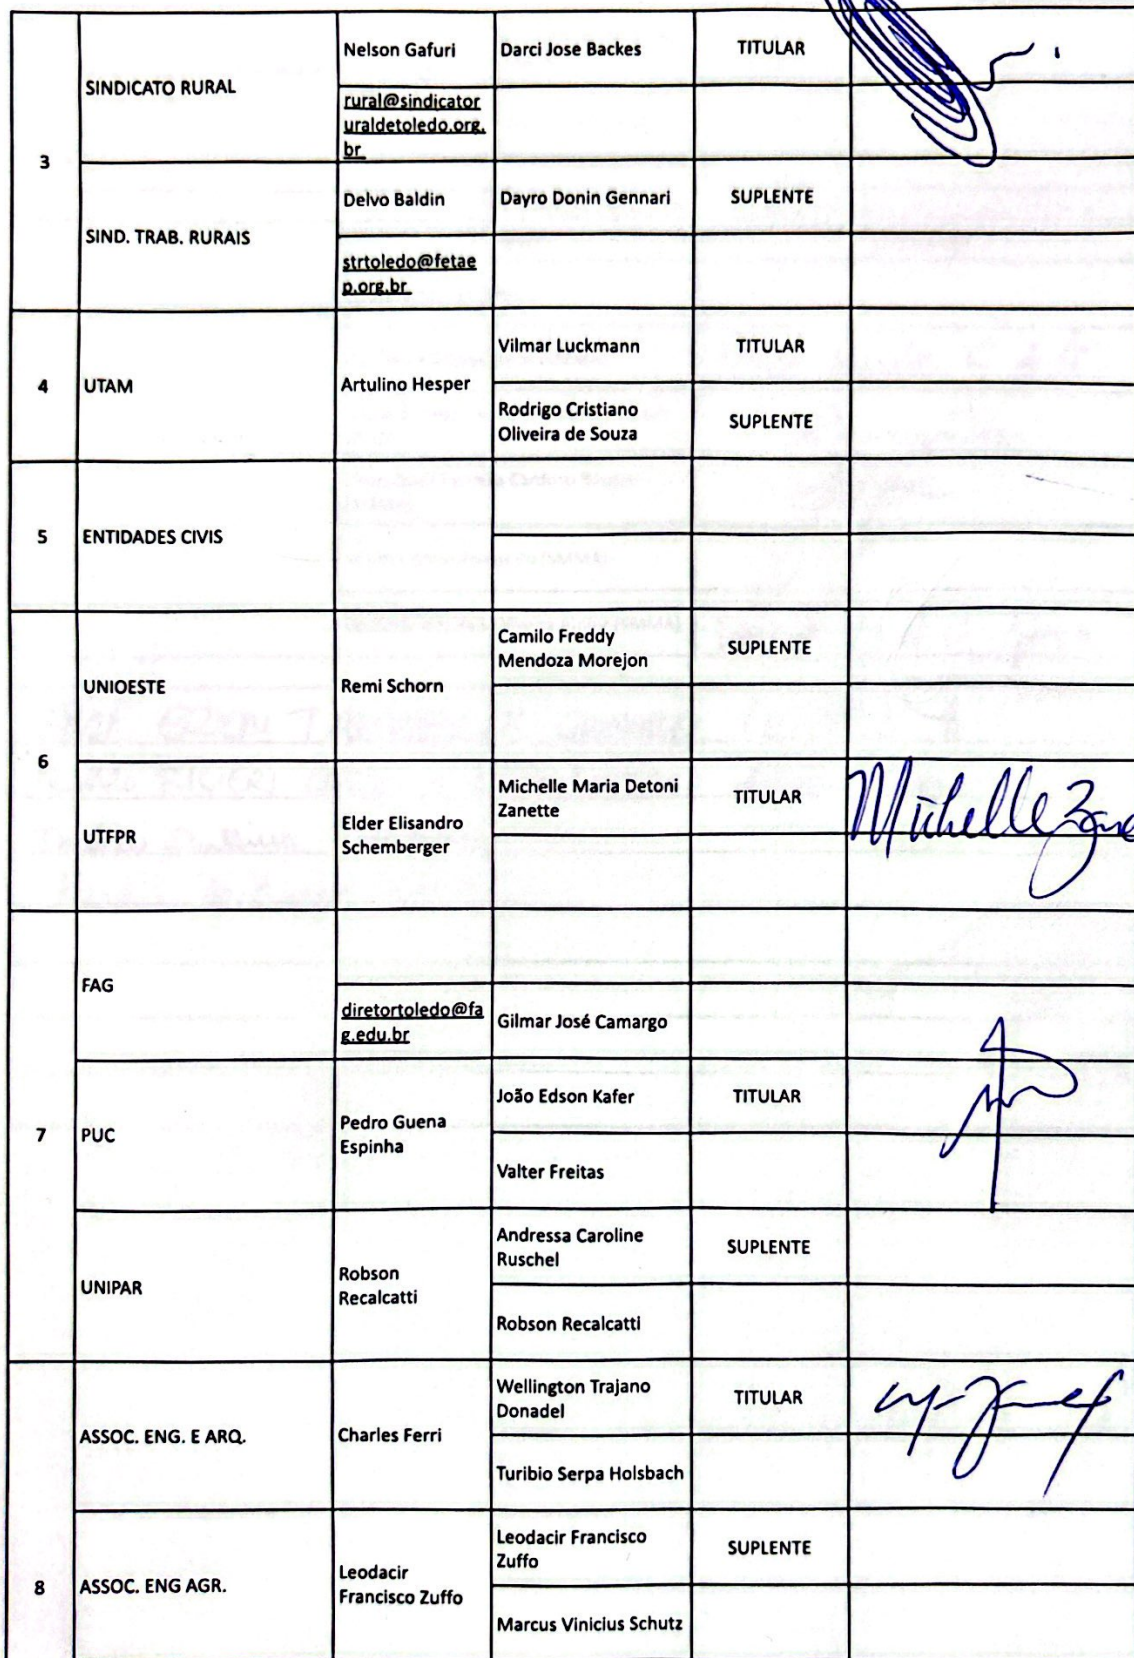 3
SINDICATO RURAL
Nelson Gafuri
Darci Jose Backes
TITULAR
rural@sindicator
uraldetoledo.org.
br
SIND. TRAB. RURAIS
Delvo Baldin
Dayro Donin Gennari
SUPLENTE
strtoledo@fetae
p.org.br
4
UTAM
Artulino Hesper
Vilmar Luckmann
TITULAR
Rodrigo Cristiano
Oliveira de Souza
SUPLENTE
5
ENTIDADES CIVIS
6
UNIOESTE
Remi Schorn
Camilo Freddy
Mendoza Morejon
SUPLENTE
UTFPR
Elder Elisandro
Schemberger
Michelle Maria Detoni
Zanette
TITULAR
Michelle Zane
7
FAG
diretortoledo@fa
g.edu.br
Gilmar José Camargo
PUC
Pedro Guena
Espinha
João Edson Kafer
TITULAR
Valter Freitas
UNIPAR
Robson
Recalcatti
Andressa Caroline
Ruschel
SUPLENTE
Robson Recalcatti
8
ASSOC. ENG. E ARQ.
Charles Ferri
Wellington Trajano
Donadel
TITULAR
Turibio Serpa Holsbach
ASSOC. ENG AGR.
Leodacir
Francisco Zuffo
Leodacir Francisco
Zuffo
SUPLENTE
Marcus Vinicius Schutz